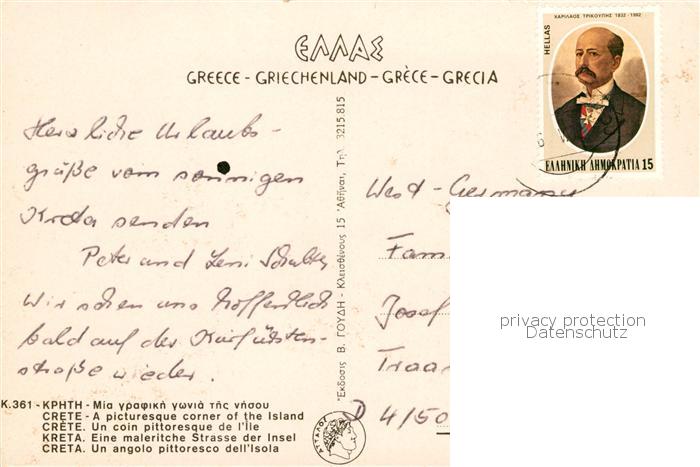 ΕΛΛΑΣ
GREECE - GRIECHENLAND - GRÈCE - GRECIA
ΧΑΡΙΛΑΟΣ ΤΡΙΚΟΥΠΗΣ 1832 - 1982
HELLAS
ΕΛΛΗΝΙΚΗ ΔΗΜΟΚΡΑΤΙΑ 15
Herzliche Urlaubs-
grüße vom sonnigen
Kreta senden
Peter und Leni
Wir sehen uns hoffentlich
bald auf der Kurfürsten-
straße wieder.
Ἔκδοσις Β. ΓΟΥΔΗ - Κλεισθένους 15 Ἀθῆναι, Τηλ. 3215.815
West-Germany
Fam
Josef
D 4150
privacy protection
Datenschutz
Κ.361 - ΚΡΗΤΗ - Μία γραφική γωνιά τῆς νήσου
CRETE - A picturesque corner of the Island
CRÈTE. Un coin pittoresque de l'Île
KRETA. Eine maleritche Strasse der Insel
CRETA. Un angolo pittoresco dell'Isola
ΑΤΤΑΛΟΣ